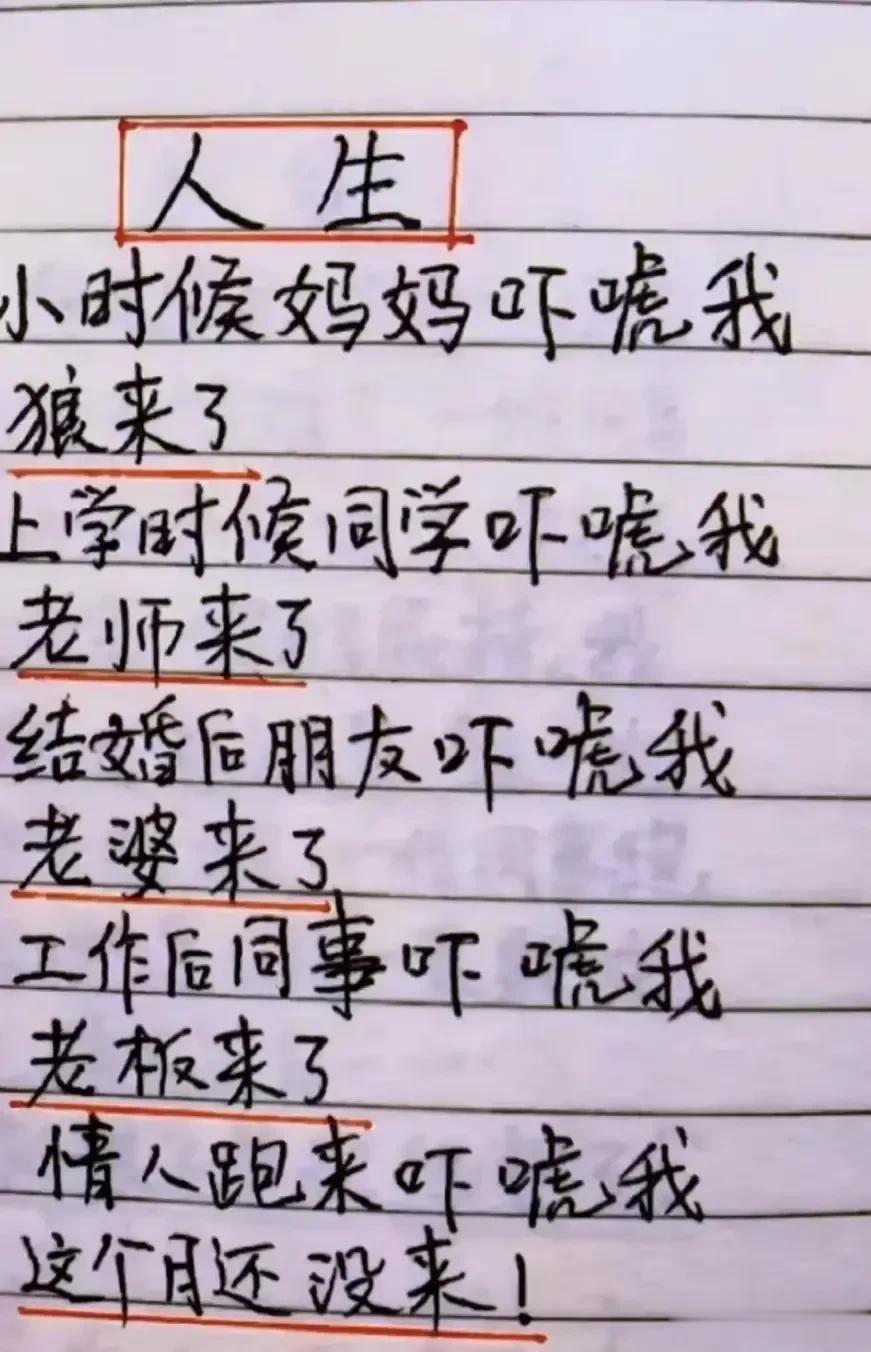 人生
小时候妈妈吓唬我
狼来了
上学时候同学吓唬我
老师来了
结婚后朋友吓唬我
老婆来了
工作后同事吓唬我
老板来了
情人跑来吓唬我
这个月还没来！